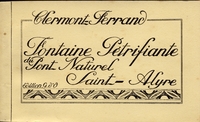 Clermont-Ferrand
Fontaine Pétrifiante
du Pont Naturel
Saint-Alyre
Edition G. d'O